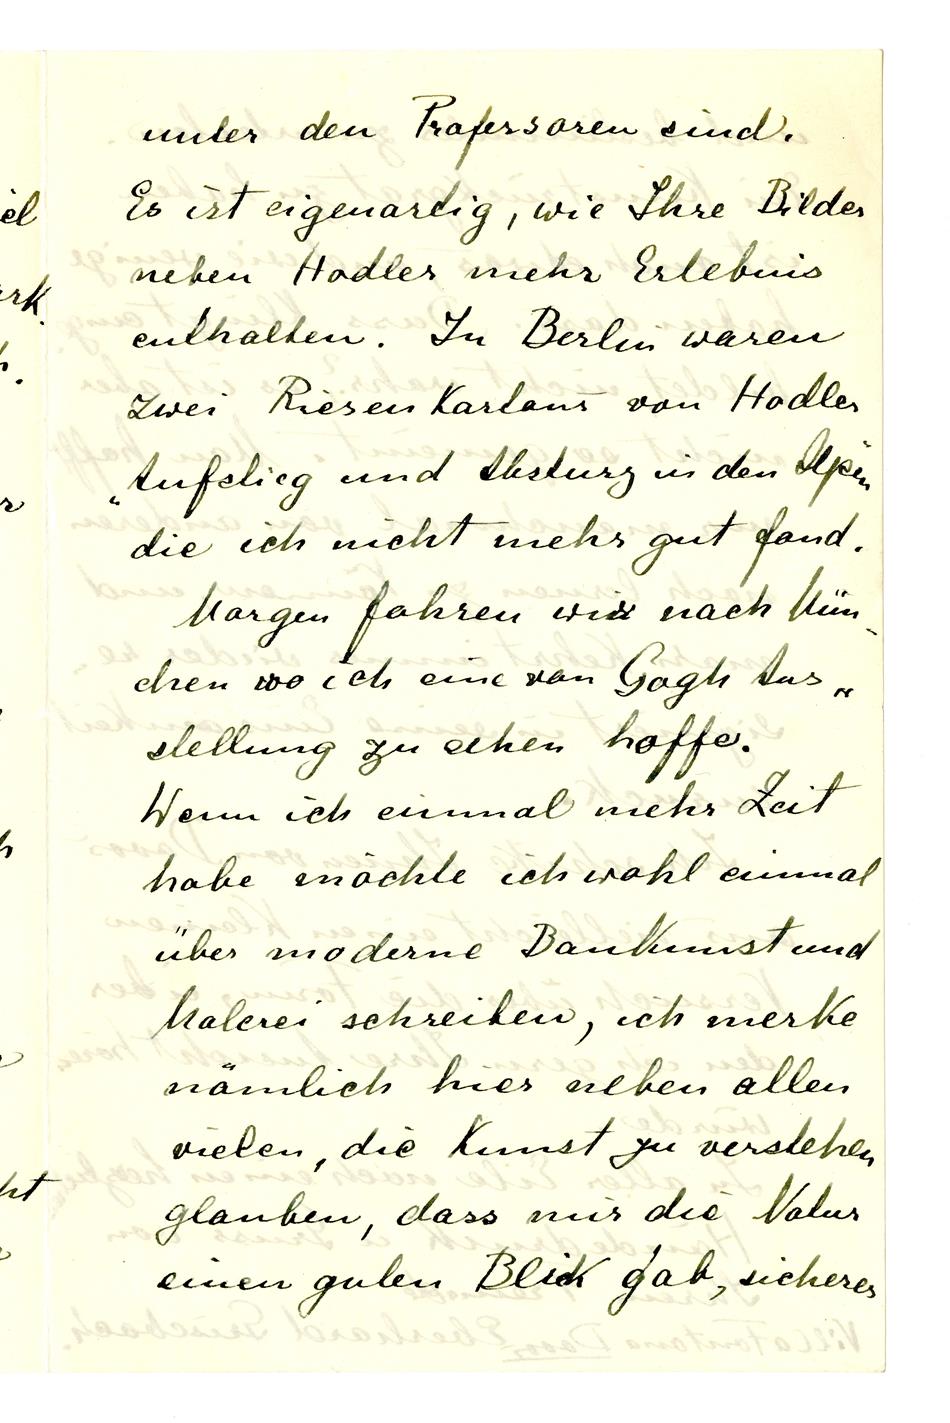 unter den Professoren sind.
Es ist eigenartig, wie Ihre Bilder
neben Hodler mehr Erlebnis
enthalten. In Berlin waren
zwei Riesen Kartons von Hodler
„Aufstieg und Absturz in den Alpen
die ich nicht mehr gut fand.
Morgen fahren wir nach Mün-
chen wo ich eine van Gogh Aus„
stellung zu sehen hoffe.
Wenn ich einmal mehr Zeit
habe möchte ich wohl einmal
über moderne Baukunst und
Malerei schreiben, ich merke
nämlich hier neben allen
vielen, die Kunst zu verstehen
glauben, dass mir die Natur
einen guten Blick gab, sicherer